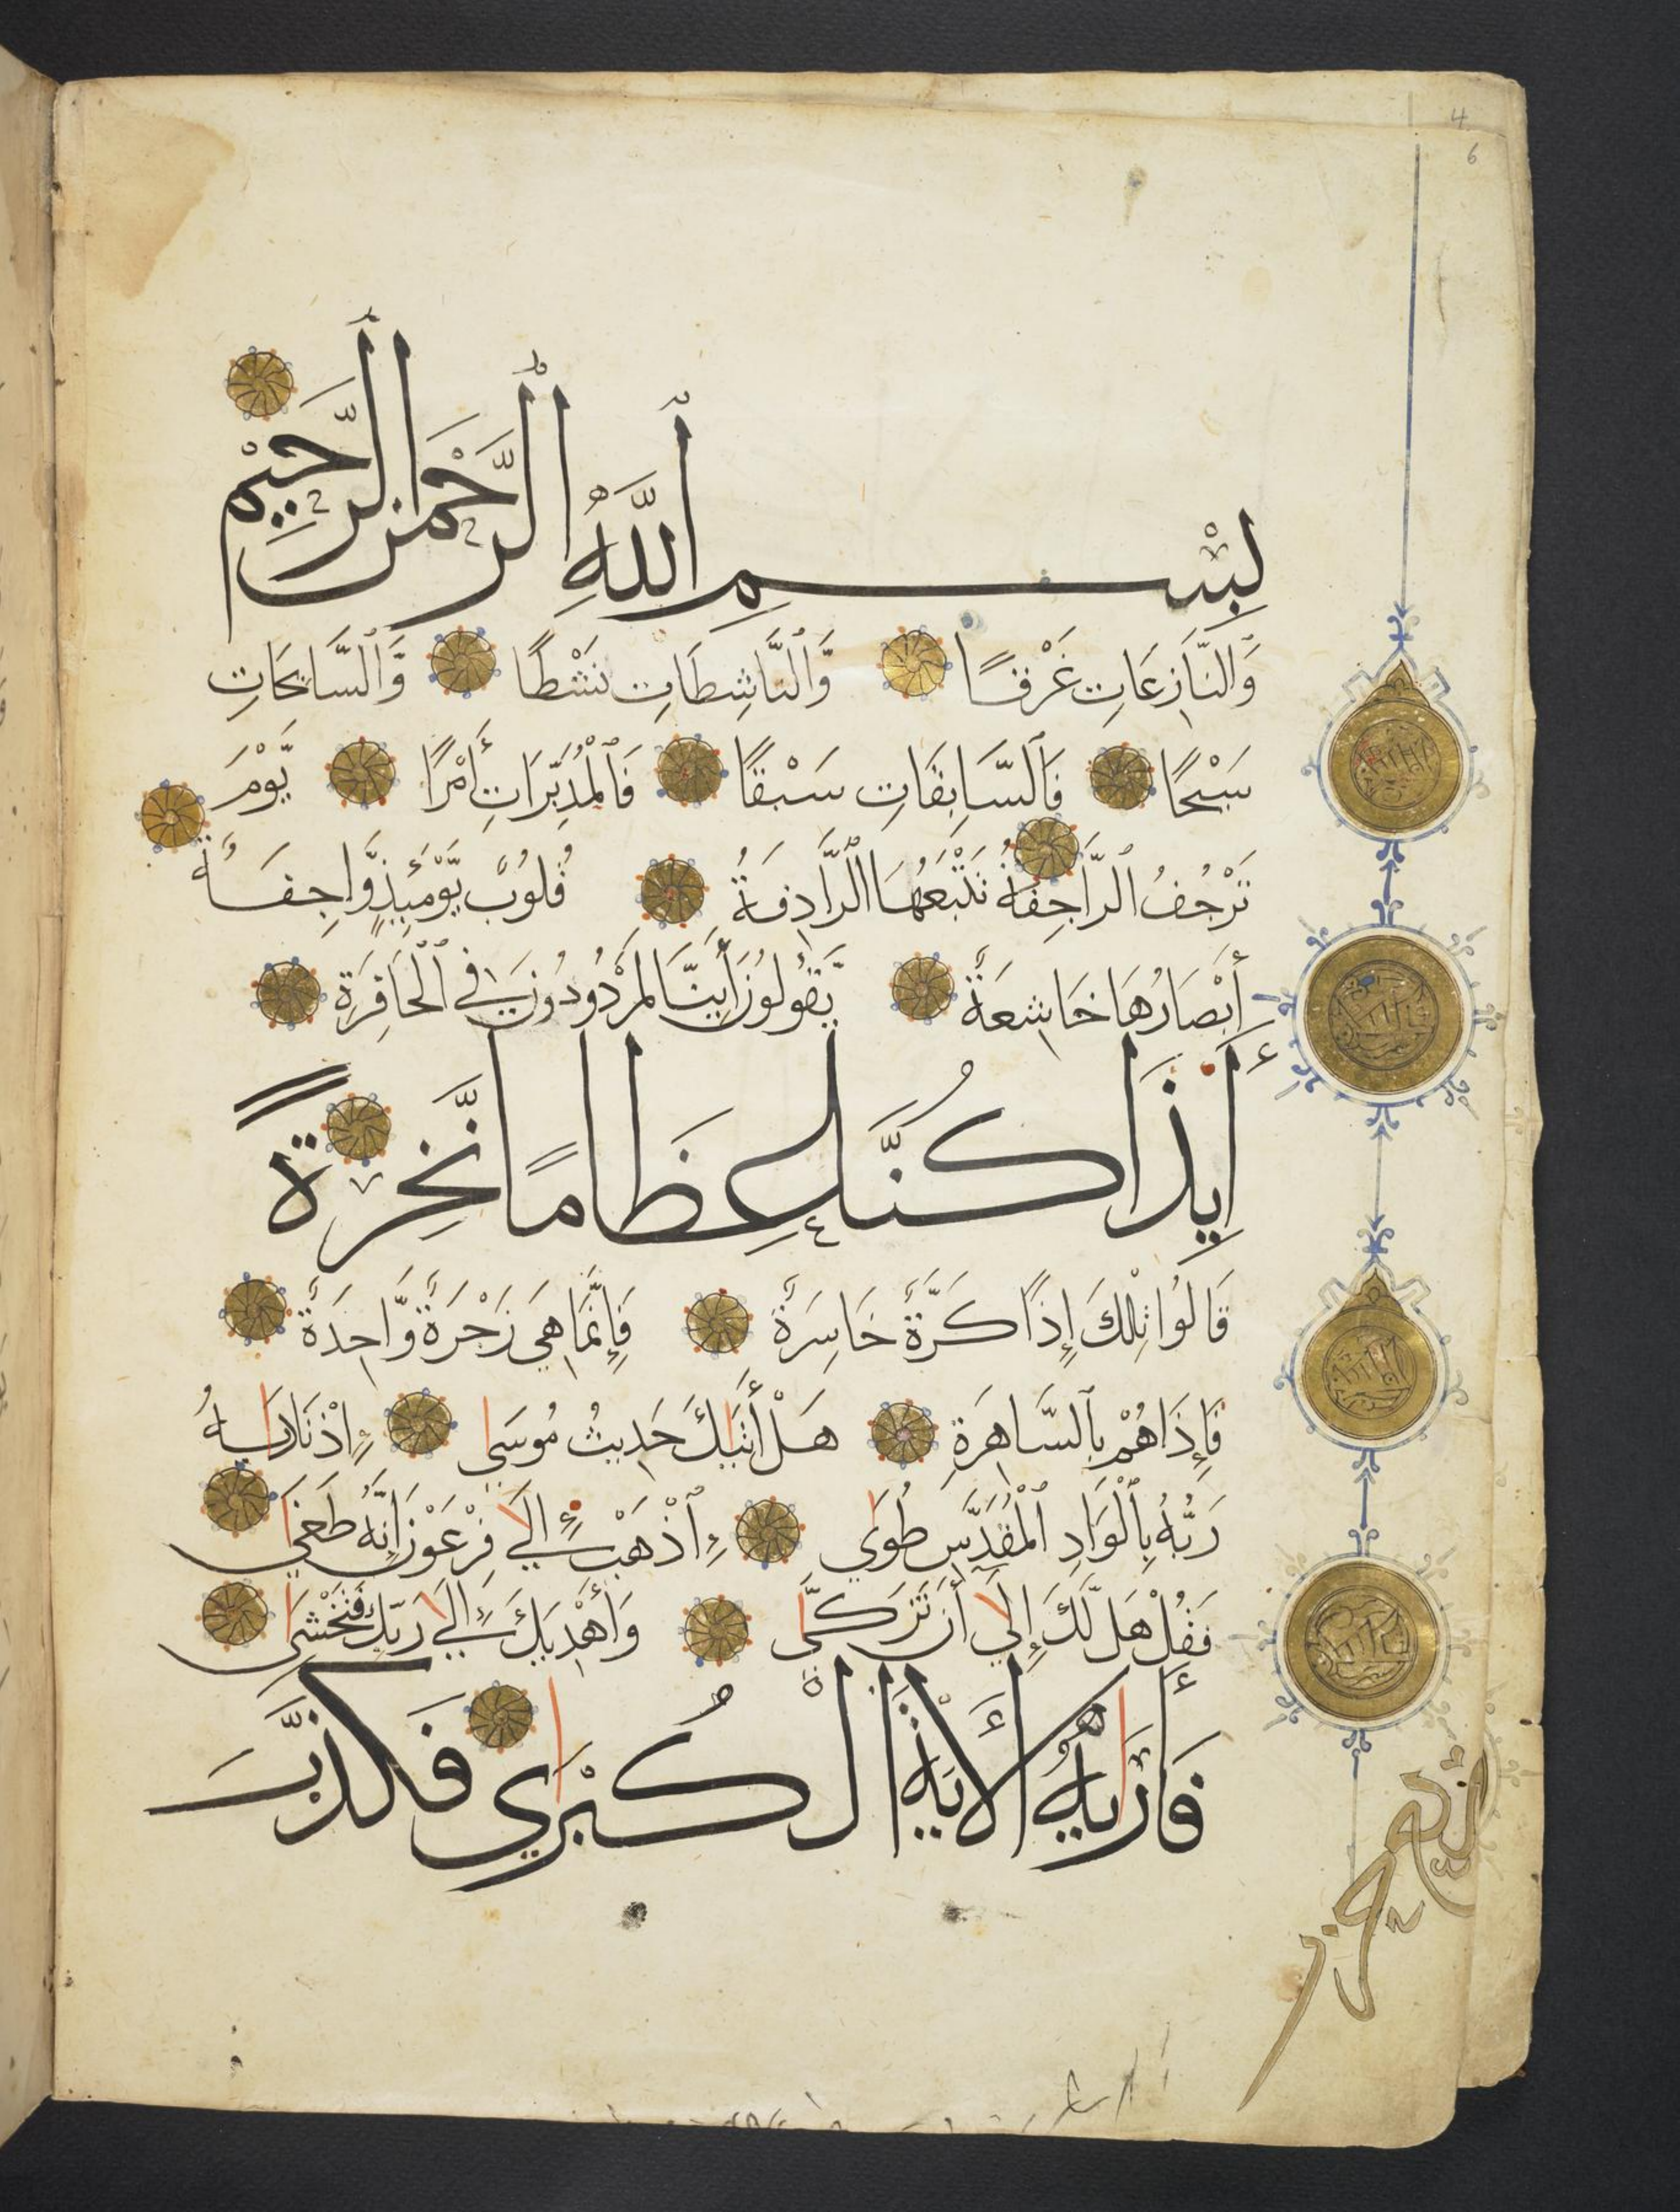 بِسْمِ ٱللَّهِ ٱلرَّحْمٰنِ ٱلرَّحِيْمِ
وَالنَّازِعَاتِ غَرْقًا وَّٱلنَّاشِطَاتِ نَشْطًا وَّٱلسَّابِحَاتِ
سَبْحًا فَٱلسَّابِقَاتِ سَبْقًا فَٱلْمُدَبِّرَاتِ أَمْرًا يَّوْمَ
تَرْجُفُ الرَّاجِفَةُ تَتْبَعُهَا الرَّادِفَةُ قُلُوبٌ يَّوْمَئِذٍ وَّاجِفَةٌ
أَبْصَارُهَا خَاشِعَةٌ يَّقُولُونَ أَئِنَّا لَمَرْدُودُونَ فِي ٱلْحَافِرَةِ
أَيِذَا كُنَّا عِظَامًا نَّخِرَةً
قَالُوا تِلْكَ إِذًا كَرَّةٌ خَاسِرَةٌ فَإِنَّمَا هِيَ زَجْرَةٌ وَّاحِدَةٌ
فَإِذَا هُمْ بِٱلسَّاهِرَةِ هَلْ أَتَيٰكَ حَدِيثُ مُوسَىٰ اِذْ نَادَىٰهُ
رَبُّهُ بِٱلْوَادِ ٱلْمُقَدَّسِ طُوَي ٱذْهَبْ إِلَي فِرْعَوْنَ إِنَّهُ طَغَي
فَقُلْ هَل لَّكَ إِلَي أَن تَزَكَّي وَأَهْدِيَكَ إِلَي رَبِّكَ فَتَخْشَي
فَأَرَيٰهُ ٱلْأَيَةَ الْكُبْرَي فَكَذَّبَ